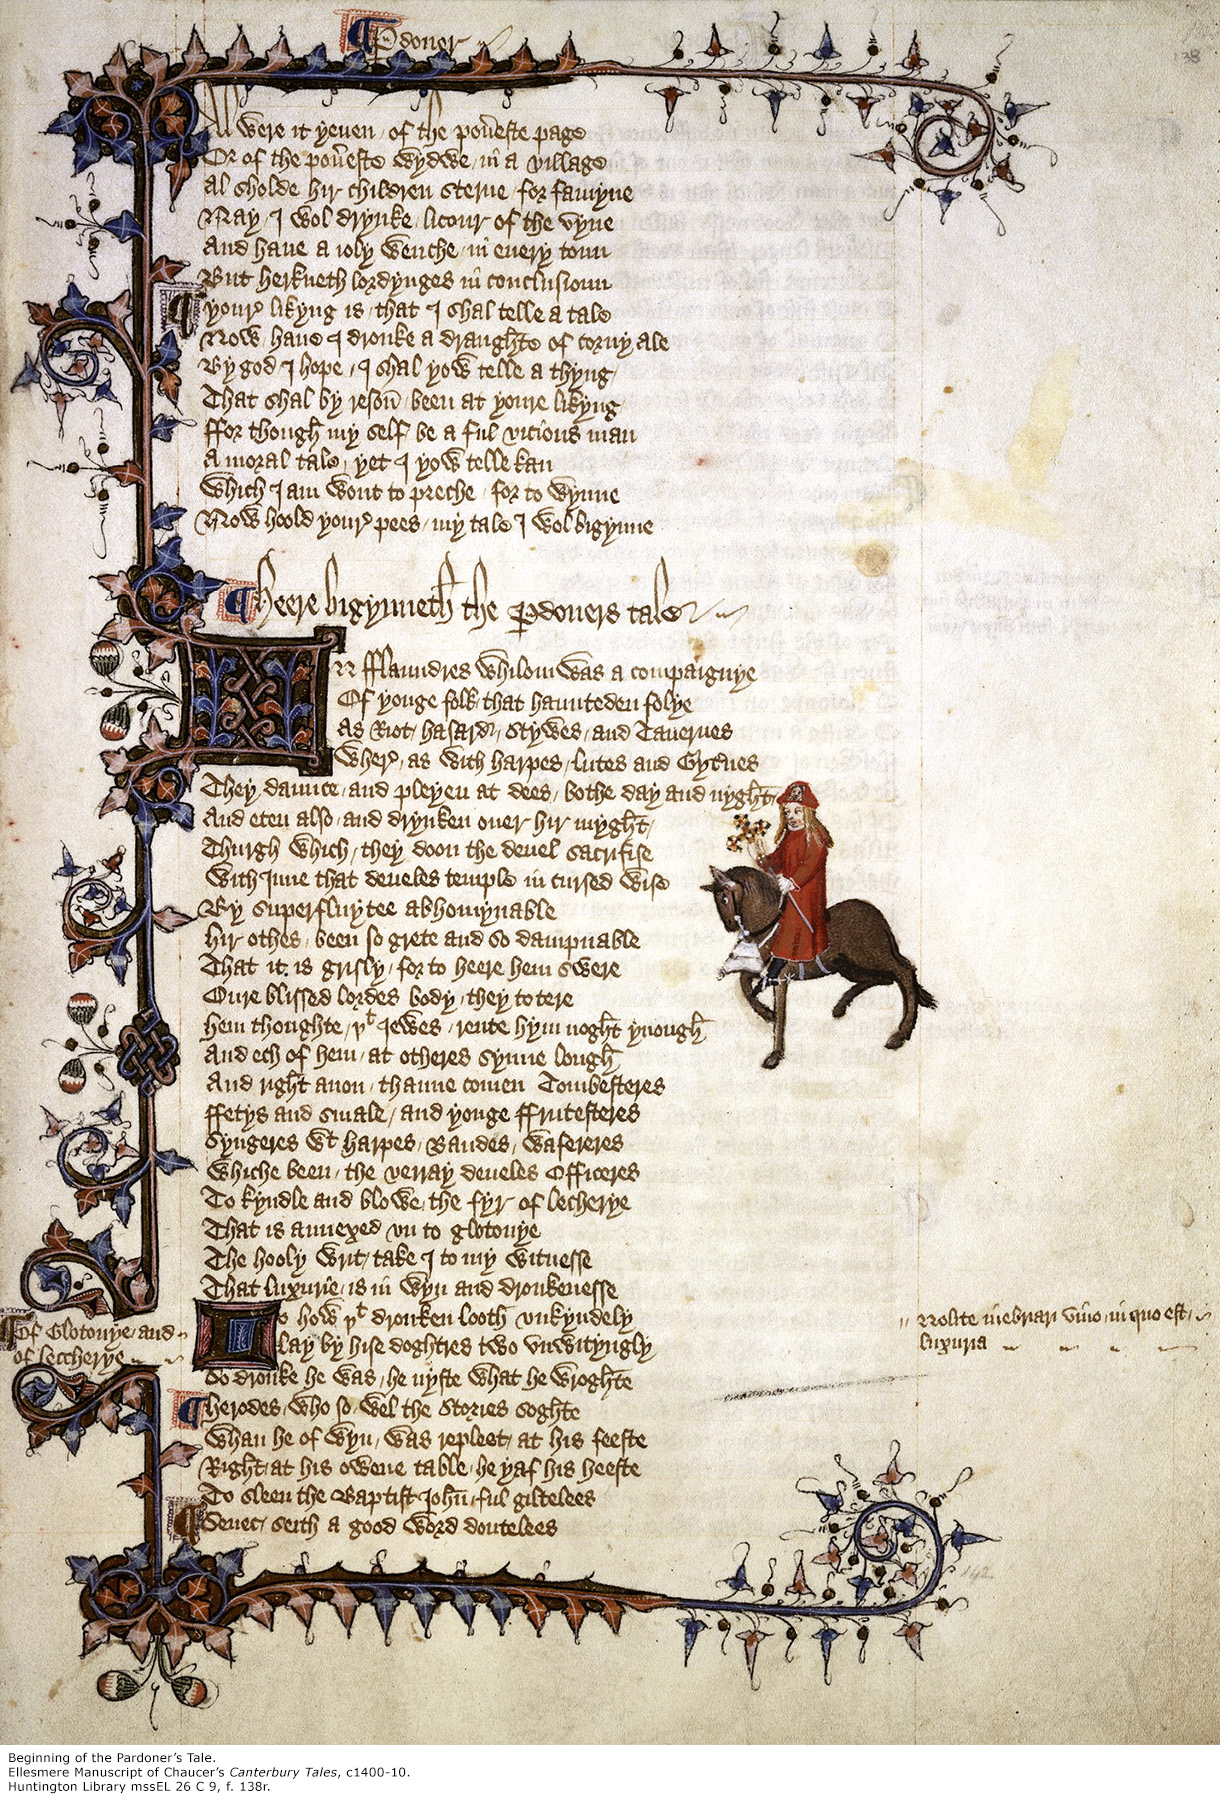 ¶ Pdoner
138
Al were it yeuen / of the pou̅este page
Or of the pou̅este wydwe / in a village
Al sholde hir children sterue / for famyne
Nay I wol drynke / licour of the vyne
And haue a ioly wenche / in euery toun
But herkneth lordynges in conclusioun
¶ Your likyng is / that I shal telle a tale
Now haue I dronke a draughte of corny ale
By god I hope / I shal yow telle a thyng /
That shal by reson̅ / been at youre likyng
ffor though my self / be a ful vicious man
A moral tale / yet I yow telle kan
Which I am wont to preche / for to wynne
Now hoold your pees / my tale I wol bigynne
¶ Heere bigynneth the Pdoners tale
IN fflaundres whilom was a compaignye
Of yonge folk / that haunteden folye
As Riot / hasard / stywes / and Tauernes
Wher / as with harpes / lutes and Gyternes
They daunce / and pleyen at dees / bothe day and nyght /
And eten also / and drynken ouer hir myght /
Thurgh which / they doon the deuel sacrifise
With Inne that deueles temple in cursed wise
By superfluytee abhomynable
Hir othes / been so grete and so dampnable
That it is grisly / for to heere hem swere
Oure blissed lordes body / they to tere
Hem thoughte / yᵗ Iewes / rente hym noght ynough
And ech of hem / at otheres synne lough
And right anon / thanne comen Tombesteres
ffetys and smale / and yonge ffrutesteres
Syngeres wᵗ harpes / Baudes / wafereres
Whiche been / the verray deueles Officeres
To kyndle and blowe / the fyr of lecherye
That is annexed vn to glotonye
The hooly writ / take I to my witnesse
That luxurie / is in wyn and dronkenesse
Lo how yᵗ dronken looth vnkyndely
Lay by hise doghtres two vnwityngly
So dronke he was / he nyste what he wroghte
¶ Of Glotonye / and
of leccherye
Nolite inebriari vino / in quo est /
luxuria
¶ Herodes / who so wel the stories soghte
Whan he of wyn / was repleet / at his feeste
Right / at his owene table / he yaf his heeste
To sleen the Baptist Ioh̅n / ful giltelees
¶ Senec / seith a good word doutelees
142
Beginning of the Pardoner’s Tale.
Ellesmere Manuscript of Chaucer’s Canterbury Tales, c1400-10.
Huntington Library mssEL 26 C 9, f. 138r.